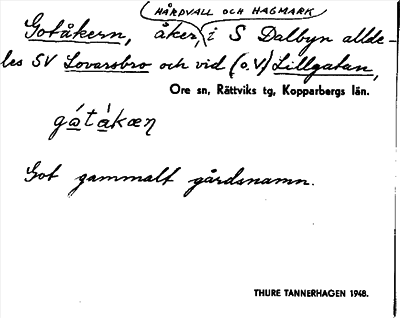 (HÅRDVALL OCH HAGMARK)
Gotåkern, åker, i S Dalbyn allde-
les SV Lovarsbro och vid (o.V) Lillgatan,
Ore sn, Rättviks tg, Kopparbergs län.
gátàkæn
Got gammalt gårdsnamn.
THURE TANNERHAGEN 1948.